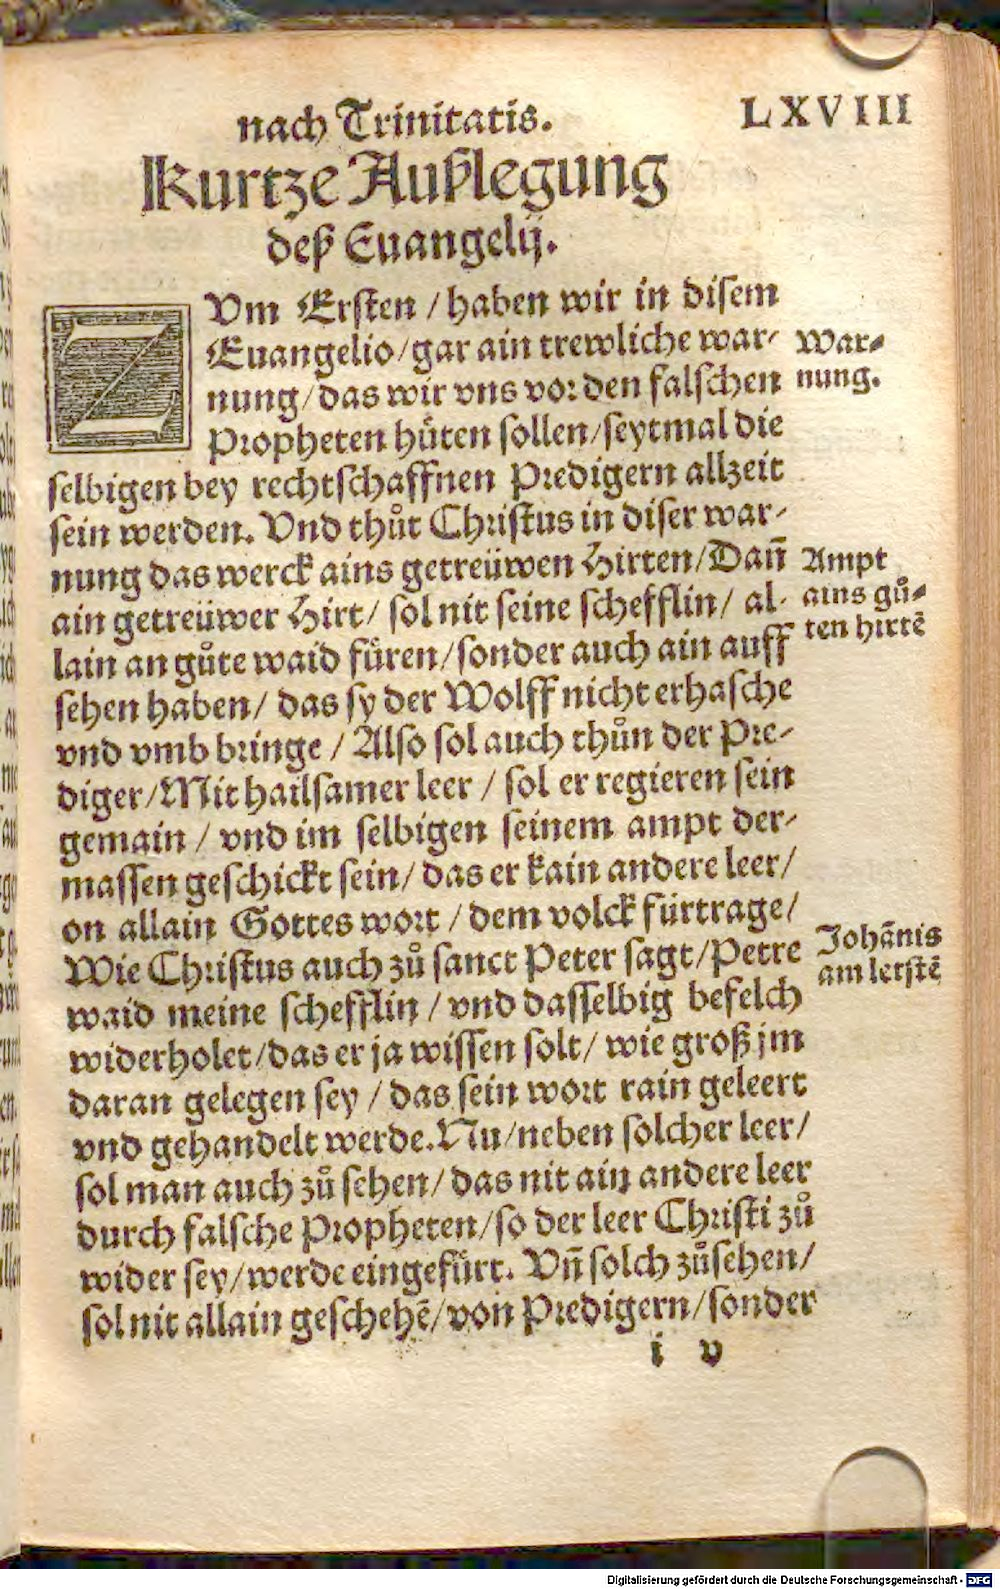 nach Trinitatis.
LXVIII
Kurtze Außlegung
deß Euangelij.
ZVm Ersten / haben wir in disem
Euangelio / gar ain trewliche war-
nung / das wir vns vor den falschen
Propheten hůten sollen / seytmal die
selbigen bey rechtschaffnen Predigern allzeit
sein werden. Vnd thůt Christus in diser war-
nung das werck ains getreüwen Hirten / Dañ
ain getreüwer Hirt / sol nit seine schefflin / al-
lain an gůte waid füren / sonder auch ain auff
sehen haben / das sy der Wolff nicht erhasche
vnd vmb bringe / Also sol auch thůn der Pre-
diger / Mit hailsamer leer / sol er regieren sein
gemain / vnd im selbigen seinem ampt der-
massen geschickt sein / das er kain andere leer /
on allain Gottes wort / dem volck fürtrage /
Wie Christus auch zů sanct Peter sagt / Petre
waid meine schefflin / vnd dasselbig befelch
widerholet / das er ja wissen solt / wie groß jm
daran gelegen sey / das sein wort rain geleert
vnd gehandelt werde. Nu / neben solcher leer /
sol man auch zů sehen / das nit ain andere leer
durch falsche Propheten / so der leer Christi zů
wider sey / werde eingefürt. Vñ solch zůsehen /
sol nit allain geschehē / von Predigern / sonder
i v
War-
nung.
Ampt
ains gů-
ten hirtē
Johānis
am letstē
Digitalisierung gefördert durch die Deutsche Forschungsgemeinschaft - DFG